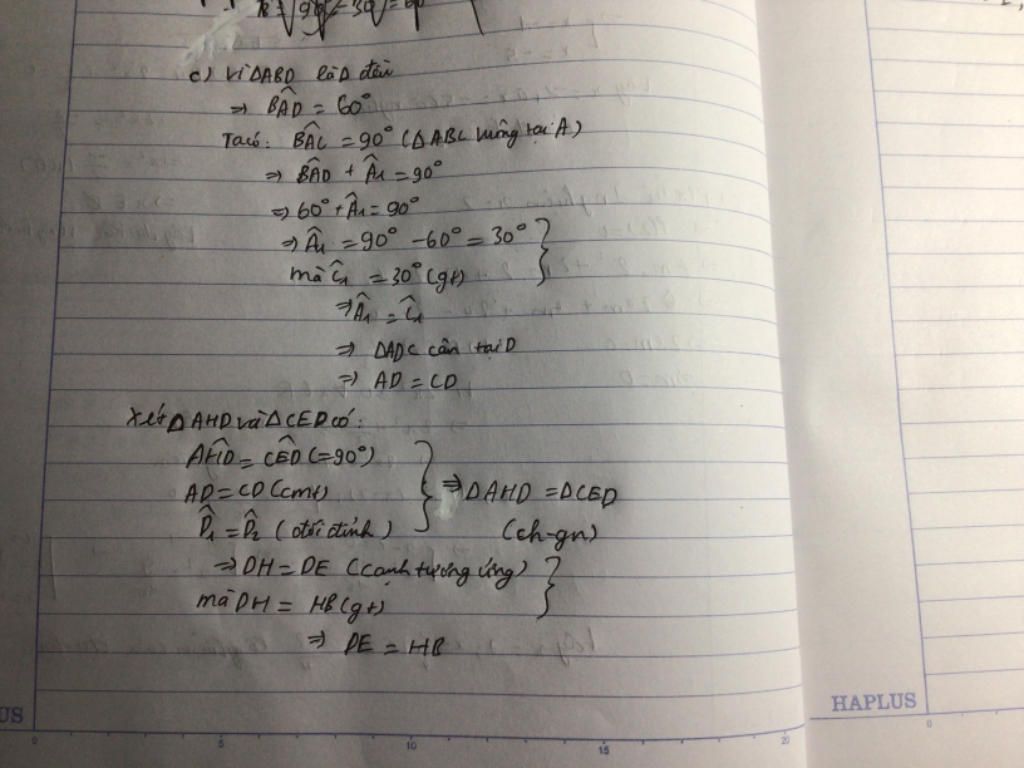 c) Vì ΔABD là Δ đều
⇒ BÂD = 60°
Ta có: BÂC = 90° (ΔABC vuông tại A)
⇒ BÂD + Â₁ = 90°
⇒ 60° + Â₁ = 90°
⇒ Â₁ = 90° - 60° = 30°
mà Ĉ₁ = 30° (gt)
⇒ Â₁ = Ĉ₁
⇒ ΔADC cân tại D
⇒ AD = CD
Xét ΔAHD và ΔCED có:
AĤD = CÊD (=90°)
AD = CD (cmt) ⇒ ΔAHD = ΔCED
D̂₁ = D̂₂ (đối đỉnh) (ch-gn)
⇒ DH = DE (cạnh tương ứng)
mà DH = HB (gt)
⇒ DE = HB
HAPLUS
US
0 5 10 15 20
0